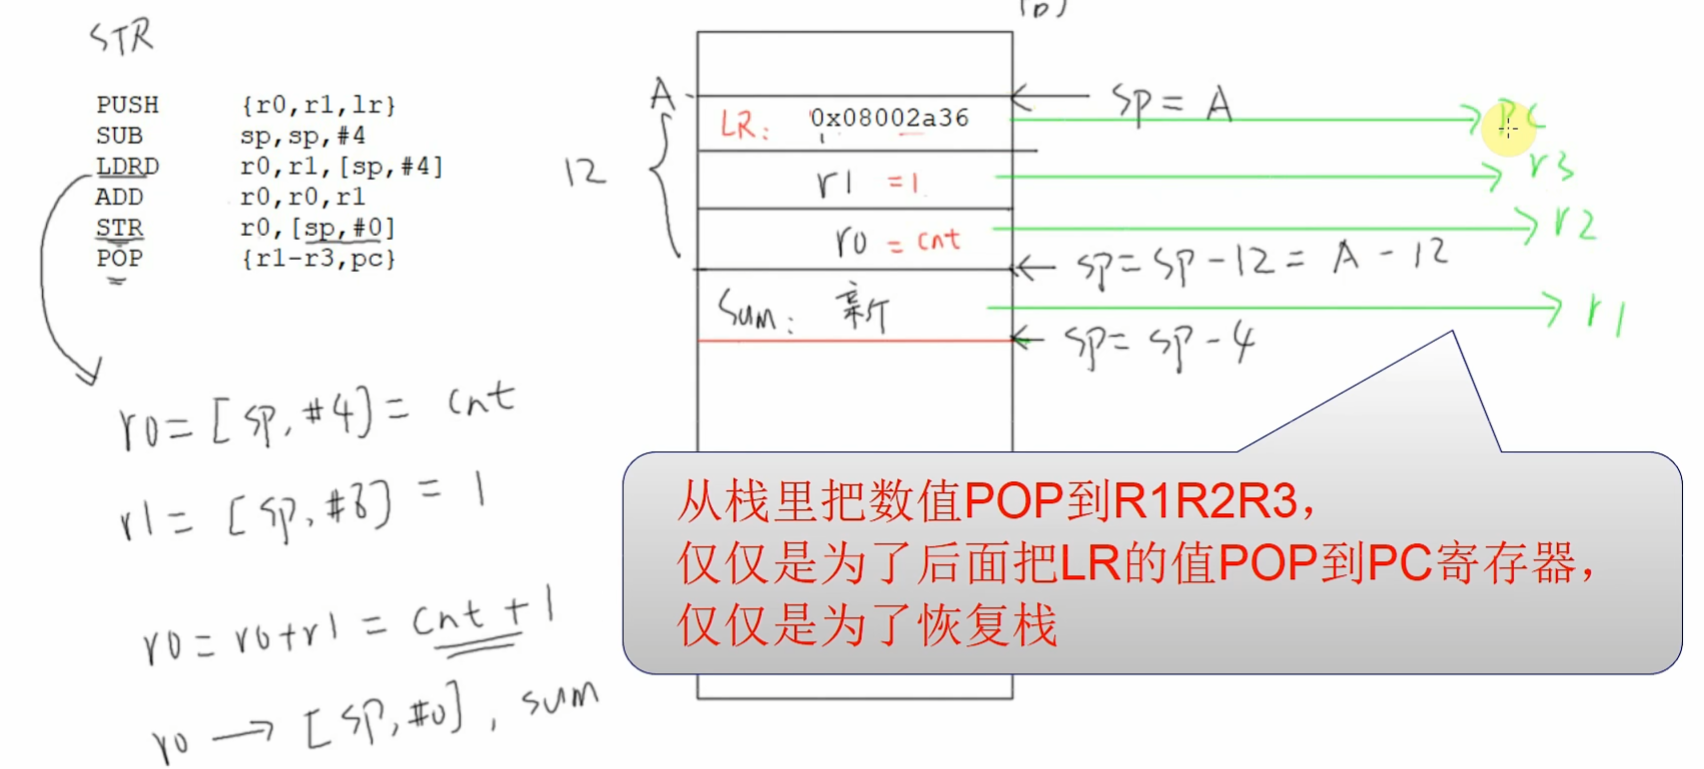 STR
PUSH {r0,r1,lr}
SUB sp,sp,#4
LDRD r0,r1,[sp,#4]
ADD r0,r0,r1
STR r0,[sp,#0]
POP {r1-r3,pc}
r0= [sp,#4]= cnt
r1= [sp,#8] = 1
r0= r0+r1 = cnt+1
r0 → [sp,#0], sum
A
12
LR: 0x08002a36
r1 =1
r0 = cnt
Sum:
sp= A
PC
r3
r2
sp= sp-12= A-12
r1
sp= sp-4
从栈里把数值POP到R1R2R3,
仅仅是为了后面把LR的值POP到PC寄存器,
仅仅是为了恢复栈